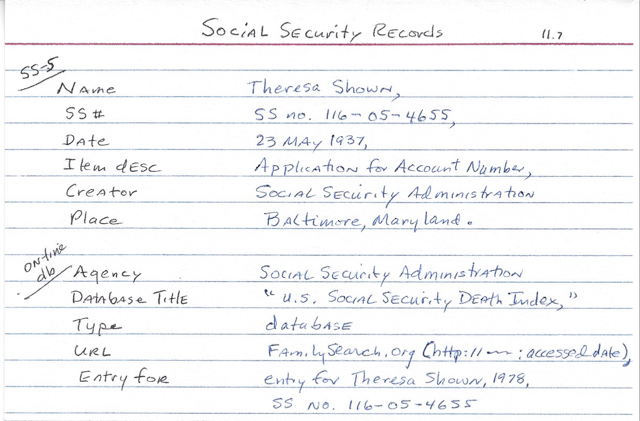 Social Security Records 11.7
SS-5
Name Theresa Shown,
SS# SS no. 116-05-4655,
Date 23 May 1937,
Item desc Application for Account Number,
Creator Social Security Administration
Place Baltimore, Maryland.
online
db
Agency Social Security Administration
Database Title "U.S. Social Security Death Index,"
Type database
URL FamilySearch.org (http://— : accessed date),
Entry for entry for Theresa Shown, 1978,
SS no. 116-05-4655